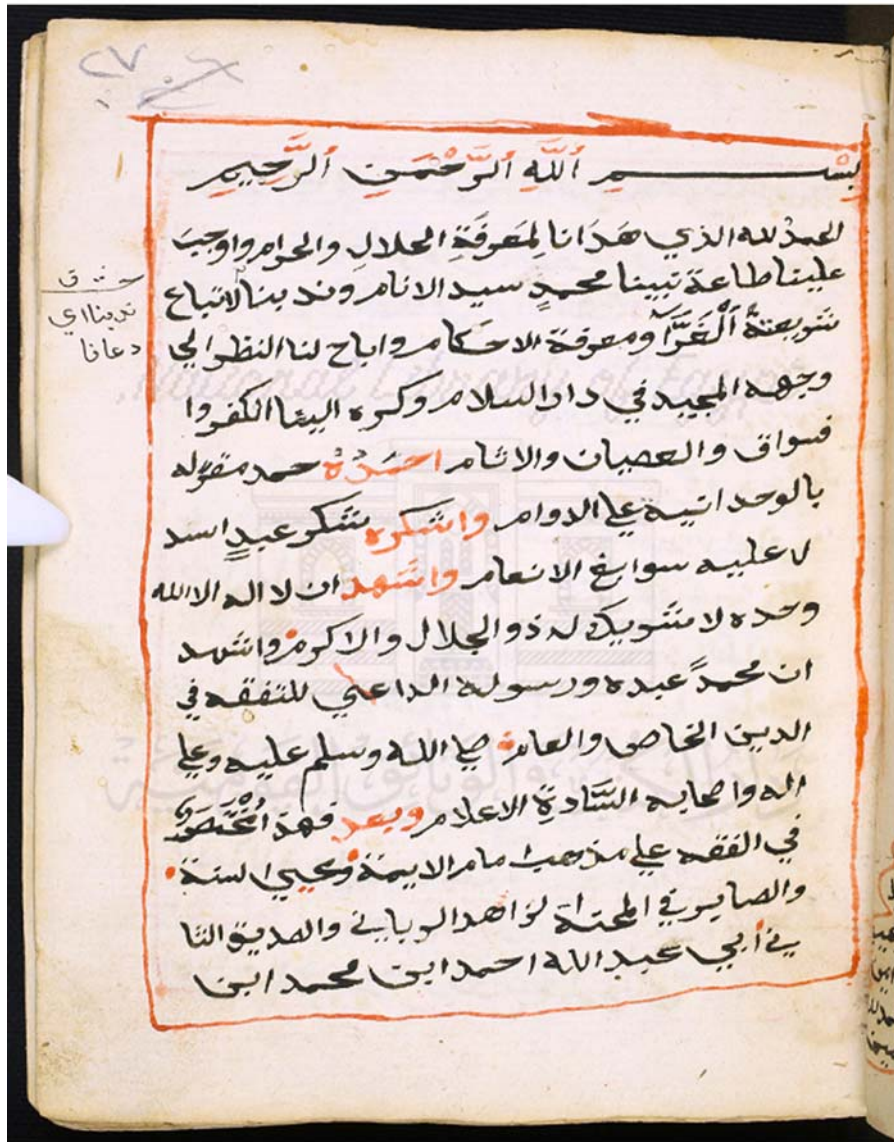 ٢٧
بسم الله الرحمن الرحيم
الحمد لله الذي هدانا لمعرفة الحلال والحرام واوجب
علينا طاعة نبينا محمدٍ سيد الانام وندبنا لاتباع
شريعته الغَرَّآ ومعرفة الاحكام واباح لنا النظر الي
وجهه المجيد في دار السلام وكره الينا الكفر وا
فسواق والعصيان والاثام احمدُهُ حمد مقرله
بالوحدانية علي الدوام واشكره شكر عبدٍ اسد
ل عليه سوابغ الانعام واشهد ان لا اله الا الله
وحده لا شريك له ذو الجلال والاكرم واشهد
ان محمدً عبده ورسوله الداعي للتفقه في
الدين الخاص والعام صلي الله وسلم عليه وعلي
اله واصحابه السَّادةِ الاعلام وبعد فهذ امُخْتَصَرٌ
في الفقه علي مذهب امام الايمة ومحيي السنة
والصابر في المحنة الزاهد الرباني والصديق الثا
ني أبي عبد الله احمد ابن محمد ابن
ندبنا اي
دعانا
دار الكتب والوثائق القومية
National Library of Egypt